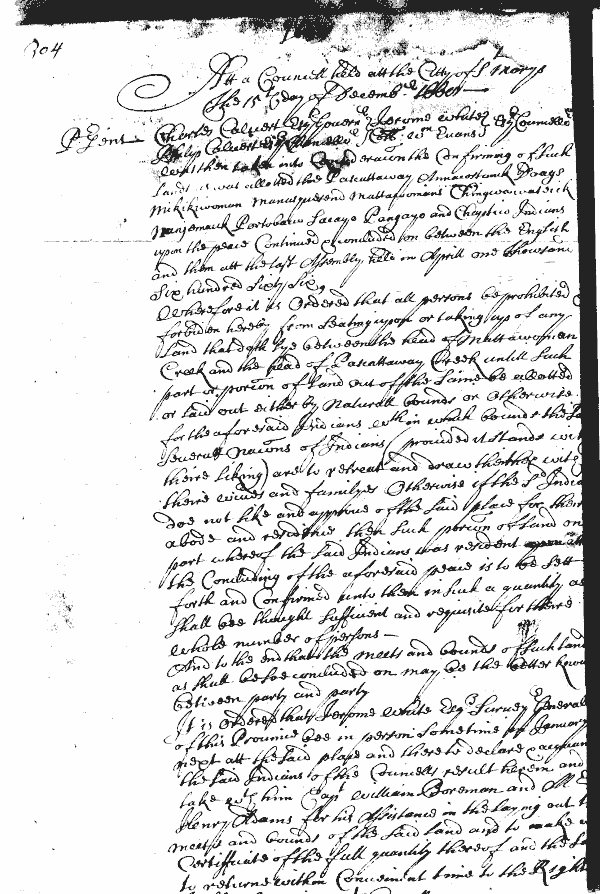 304
Att a Councell held att the Citty of St Marys
the 15th day of Decembr
Psent Charles Calvert Esqr Governr Jerome white Esqr Councellrs
Philip Calvert Esqr Chancellor Wm Evans
was then taken into Consideracon the Confirming of such
Lands as was allotted the Pascattaway Annacostanck Doags
Mikikiwoman Manasquesend Mattawomans Chingwawateick
Nanjemaick Portobacco Sacayo Pangayo and Chaptico Indians
upon the peace Continued & concluded on between the English
and them att the last Assembly held in Aprill one thousan
Six hundred Sixty Six
Wherefore it is Ordered that all persons be prohibited
forbidden hereby from Seating upon or taking up of any
Land that doth lye between the head of Mattawoman
Creek and the head of Pascattaway Creek untill such
part or porcon of Land out of the same be allotted
or laid out either by Naturall bounds or Otherwise
for the aforesaid Indians wthin which bounds the Sd
Severall Nacons of Indians (provided it stands wit
theire liking) are to retreat and draw themselves wit
theire wives and familyes Otherwise if the Sd India
doe not like and approve of the said place for their
abode and residence then such porcon of land on
part whereof the said Indians was resident att
the Concluding of the aforesaid peace is to be sett
forth and Confirmed unto them in such a quantity as
shall bee thought sufficient and requisite for there
whole number of persons —
And to the end that the meets and bounds of such land
as shall be soe concluded on may be the better know
between party and party
It is Ordered that Jerome White Esqr Survey Generall
of this Province bee in person sometime in January
next att the said place and there to declare & acquain
the said Indians of the Councells result herein and
take wth him Capt William Boreman and Mr
Henry Adams for his Assistance in the laying out t
meets and bounds of the said land and to make
Certificate of the full quantity thereof and the sa
to returne within Convenient time to the Right